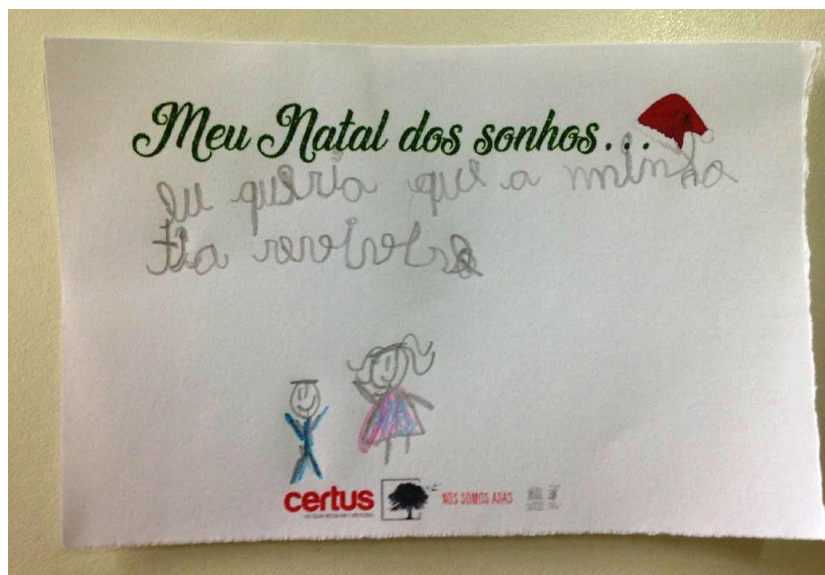 Meu Natal dos sonhos...
eu queria que a minha
tia revivelse
certus
NÓS SOMOS ASAS